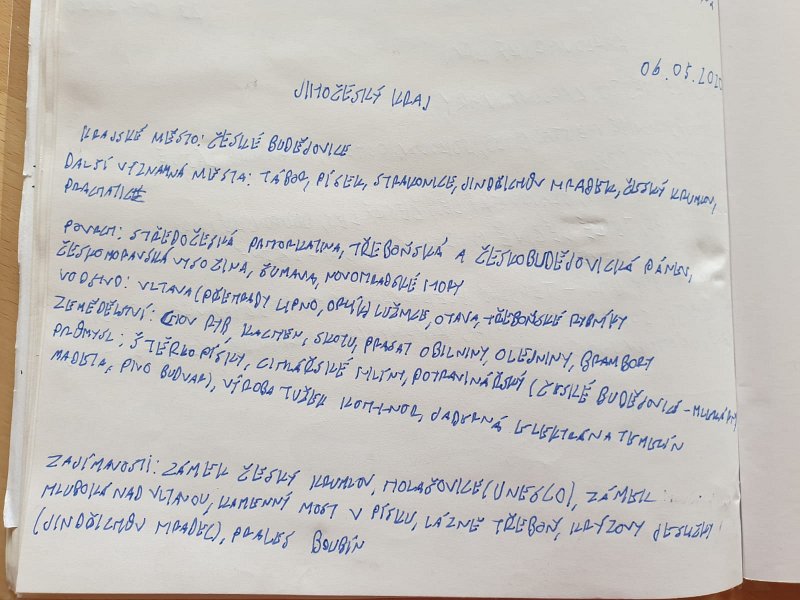 06.05.202
JIHOČESKÝ KRAJ
KRAJSKÉ MĚSTO: ČESKÉ BUDĚJOVICE
DALŠÍ VÝZNAMNÁ MĚSTA: TÁBOR, PÍSEK, STRAKONICE, JINDŘICHŮV HRADEK, ČESKÝ KRUMLOV,
PRACHATICE
POVRCH: STŘEDOČESKÁ PAHORKATINA, TŘEBOŇSKÁ A ČESKOBUDĚJOVICKÁ PÁNEV,
ČESKOMORAVSKÁ VYSOČINA, ŠUMAVA, NOVOHRADSKÉ HORY
VODSTVO: VLTAVA (PŘEHRADY LIPNO, ORLÍK) LUŽNICE, OTAVA, TŘEBOŇSKÉ RYBNÍKY
ZEMĚDĚLSTVÍ: CHOV RYB, KACHEN, SKOTU, PRASAT OBILNINY, OLEJNINY, BRAMBORY
PRŮMYSL: ŠTĚRKOPÍSKY, CIHLÁŘSKÉ HLÍNY, POTRAVINÁŘSKÝ (ČESKÉ BUDĚJOVICE - MLÉKÁRNY
MADETA, PIVO BUDVAR), VÝROBA TUŽEK KOH-I-NOR, JADERNÁ ELEKTRÁRNA TEMELÍN
ZAJÍMAVOSTI: ZÁMEK ČESKÝ KRUMLOV, HOLAŠOVICE (UNESCO), ZÁMEK
HLUBOKÁ NAD VLTAVOU, KAMENNÝ MOST V PÍSKU, LÁZNĚ TŘEBOŇ, KRÝZOVY JESLIČKY
(JINDŘICHŮV HRADEC), PRALES BOUBÍN